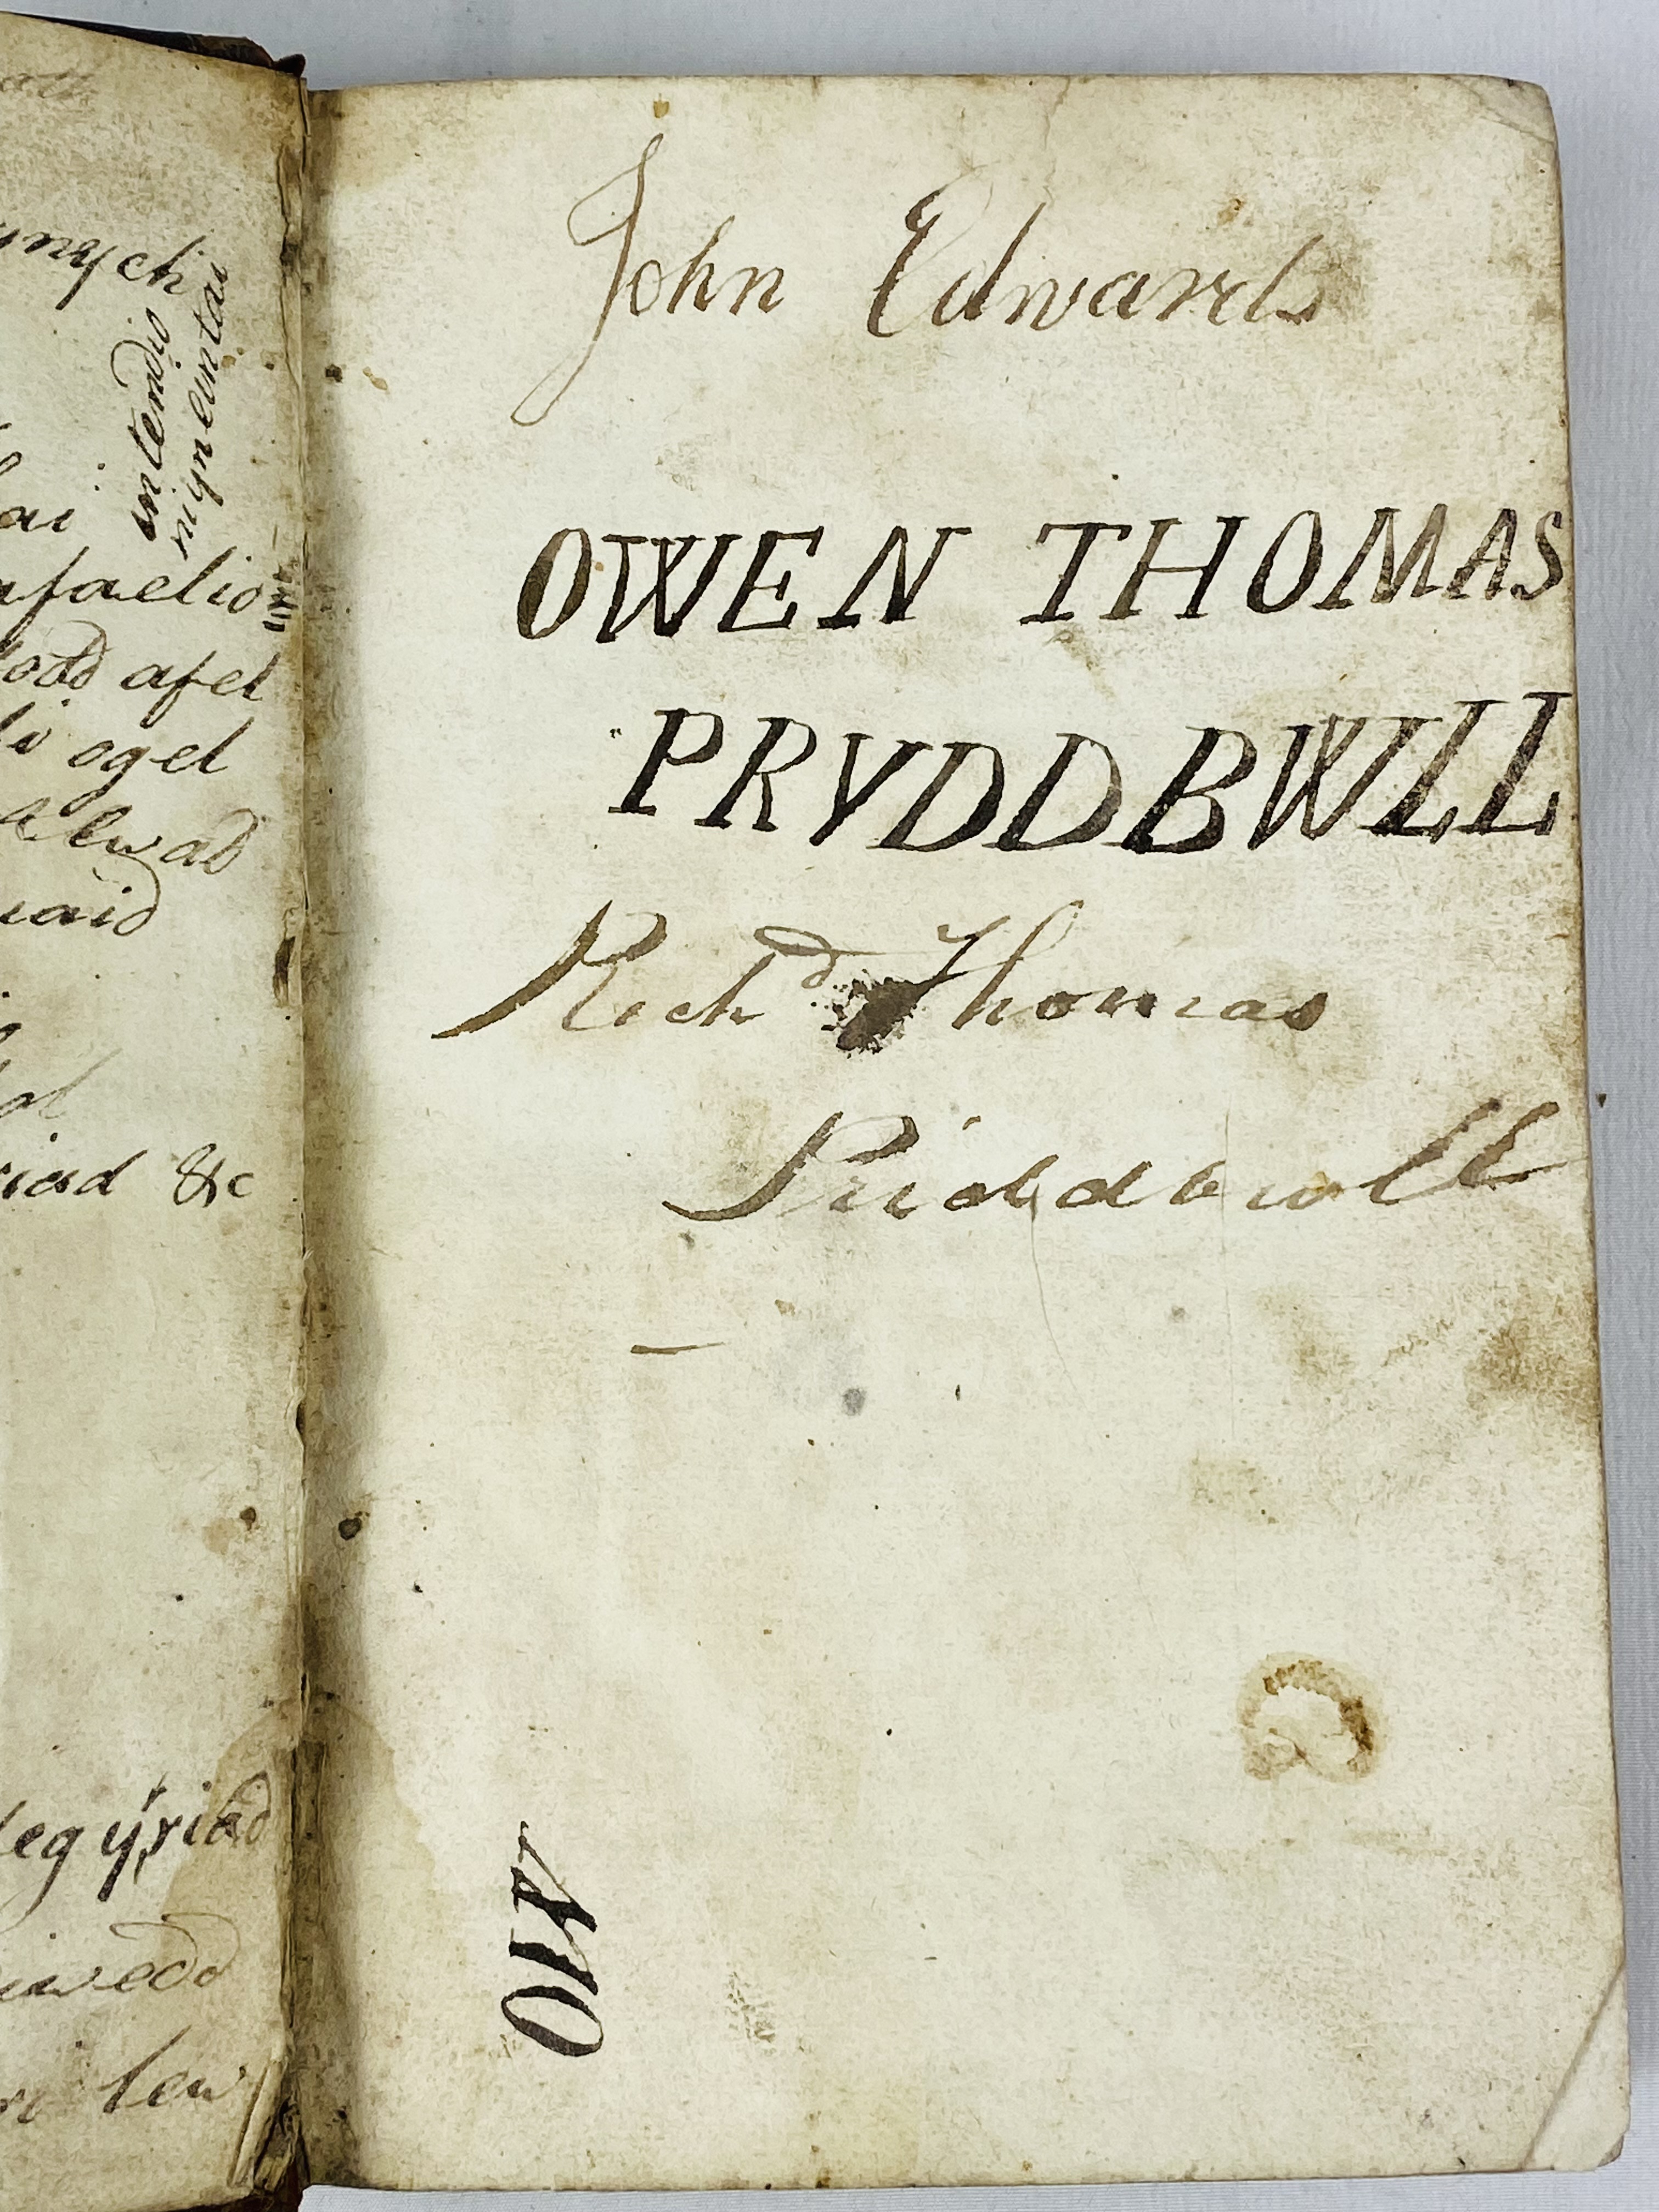 ymych
intendio
niynluntas
ai
afaelion
odd afel
i ogel
alwad
iaid
ol
iad &c
egyriad
iwedd
lew
John Edwards
OWEN THOMAS
PRYDDBWLL
Richd Thomas
Priddbwll
OW